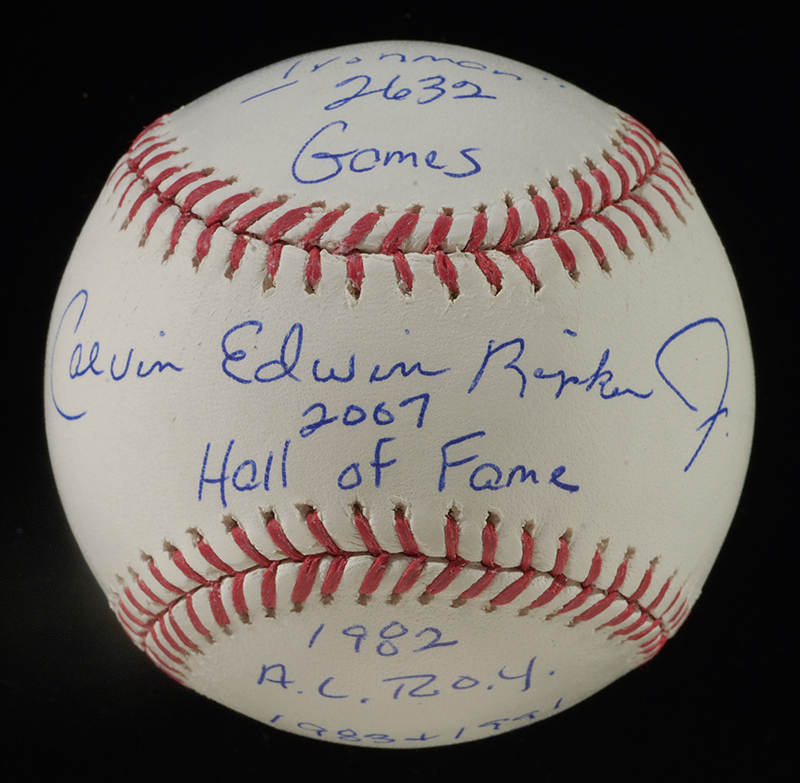 "Ironman"
2632
Games
Calvin Edwin Ripken Jr.
2007
Hall of Fame
1982
A.L. R.O.Y.
1983 + 1991